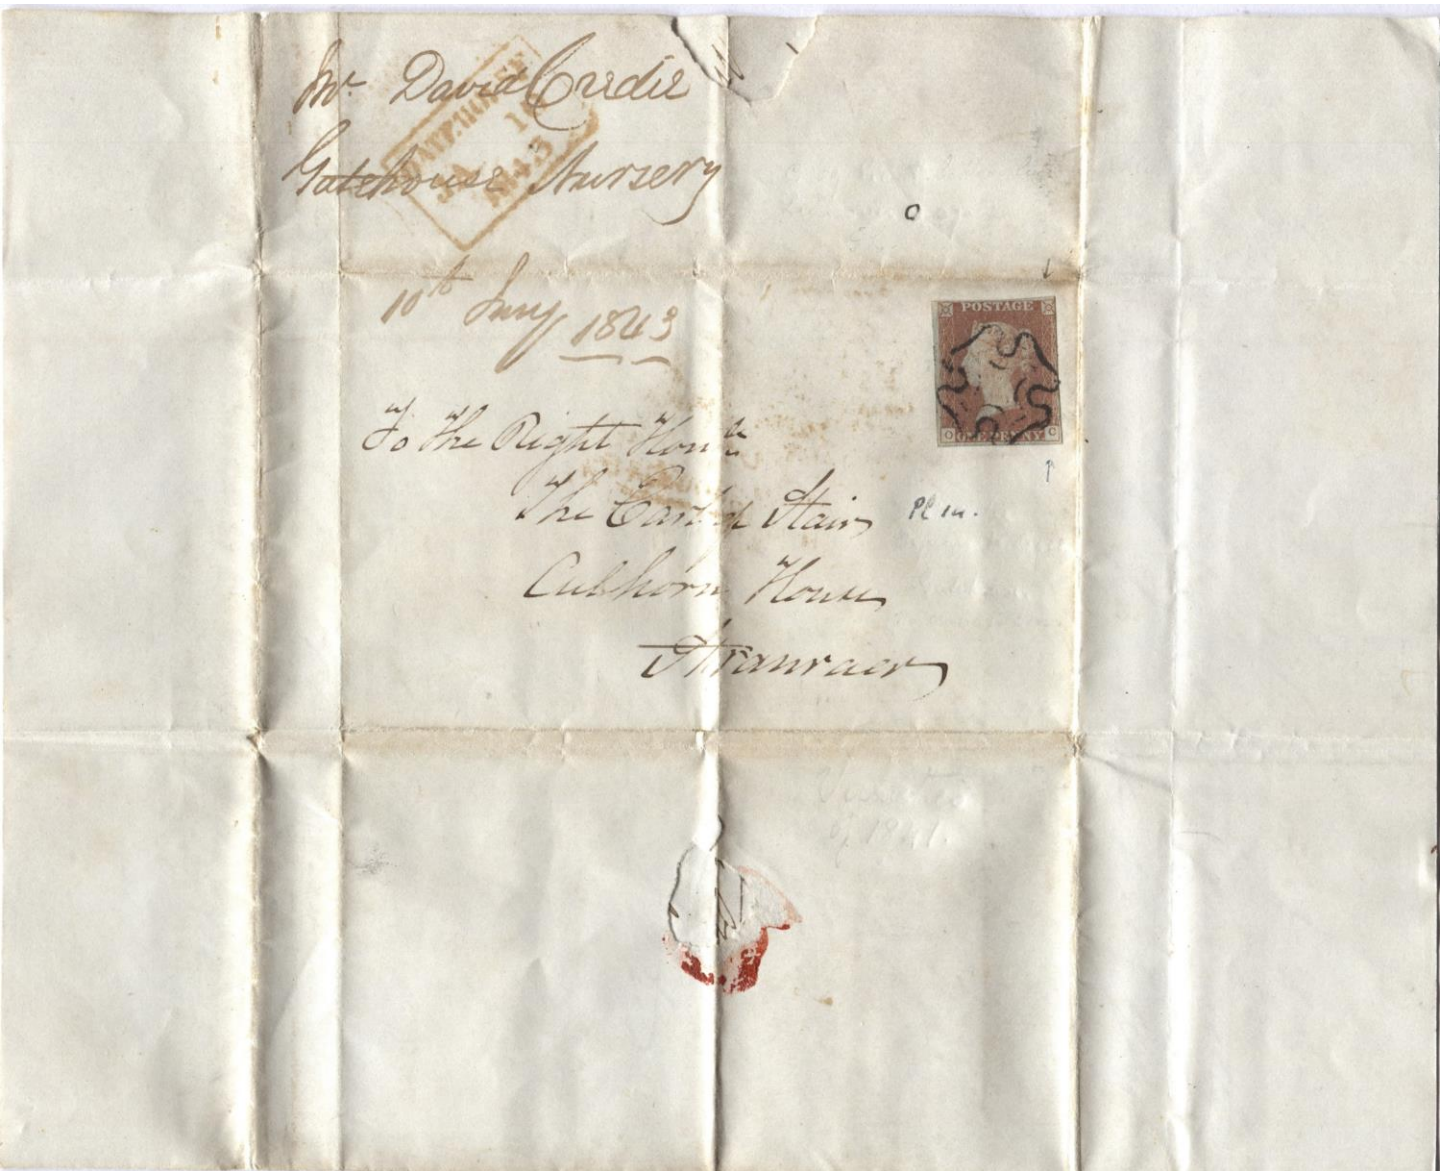 Mr David Credie
Gatehouse Nursery
GATEHOUSE
JA 10
1843
10th Jany 1843
POSTAGE
ONE PENNY
O C
To The Right Honble
The Earl of Stair
Culhorn House
Stranraer
of 1841.